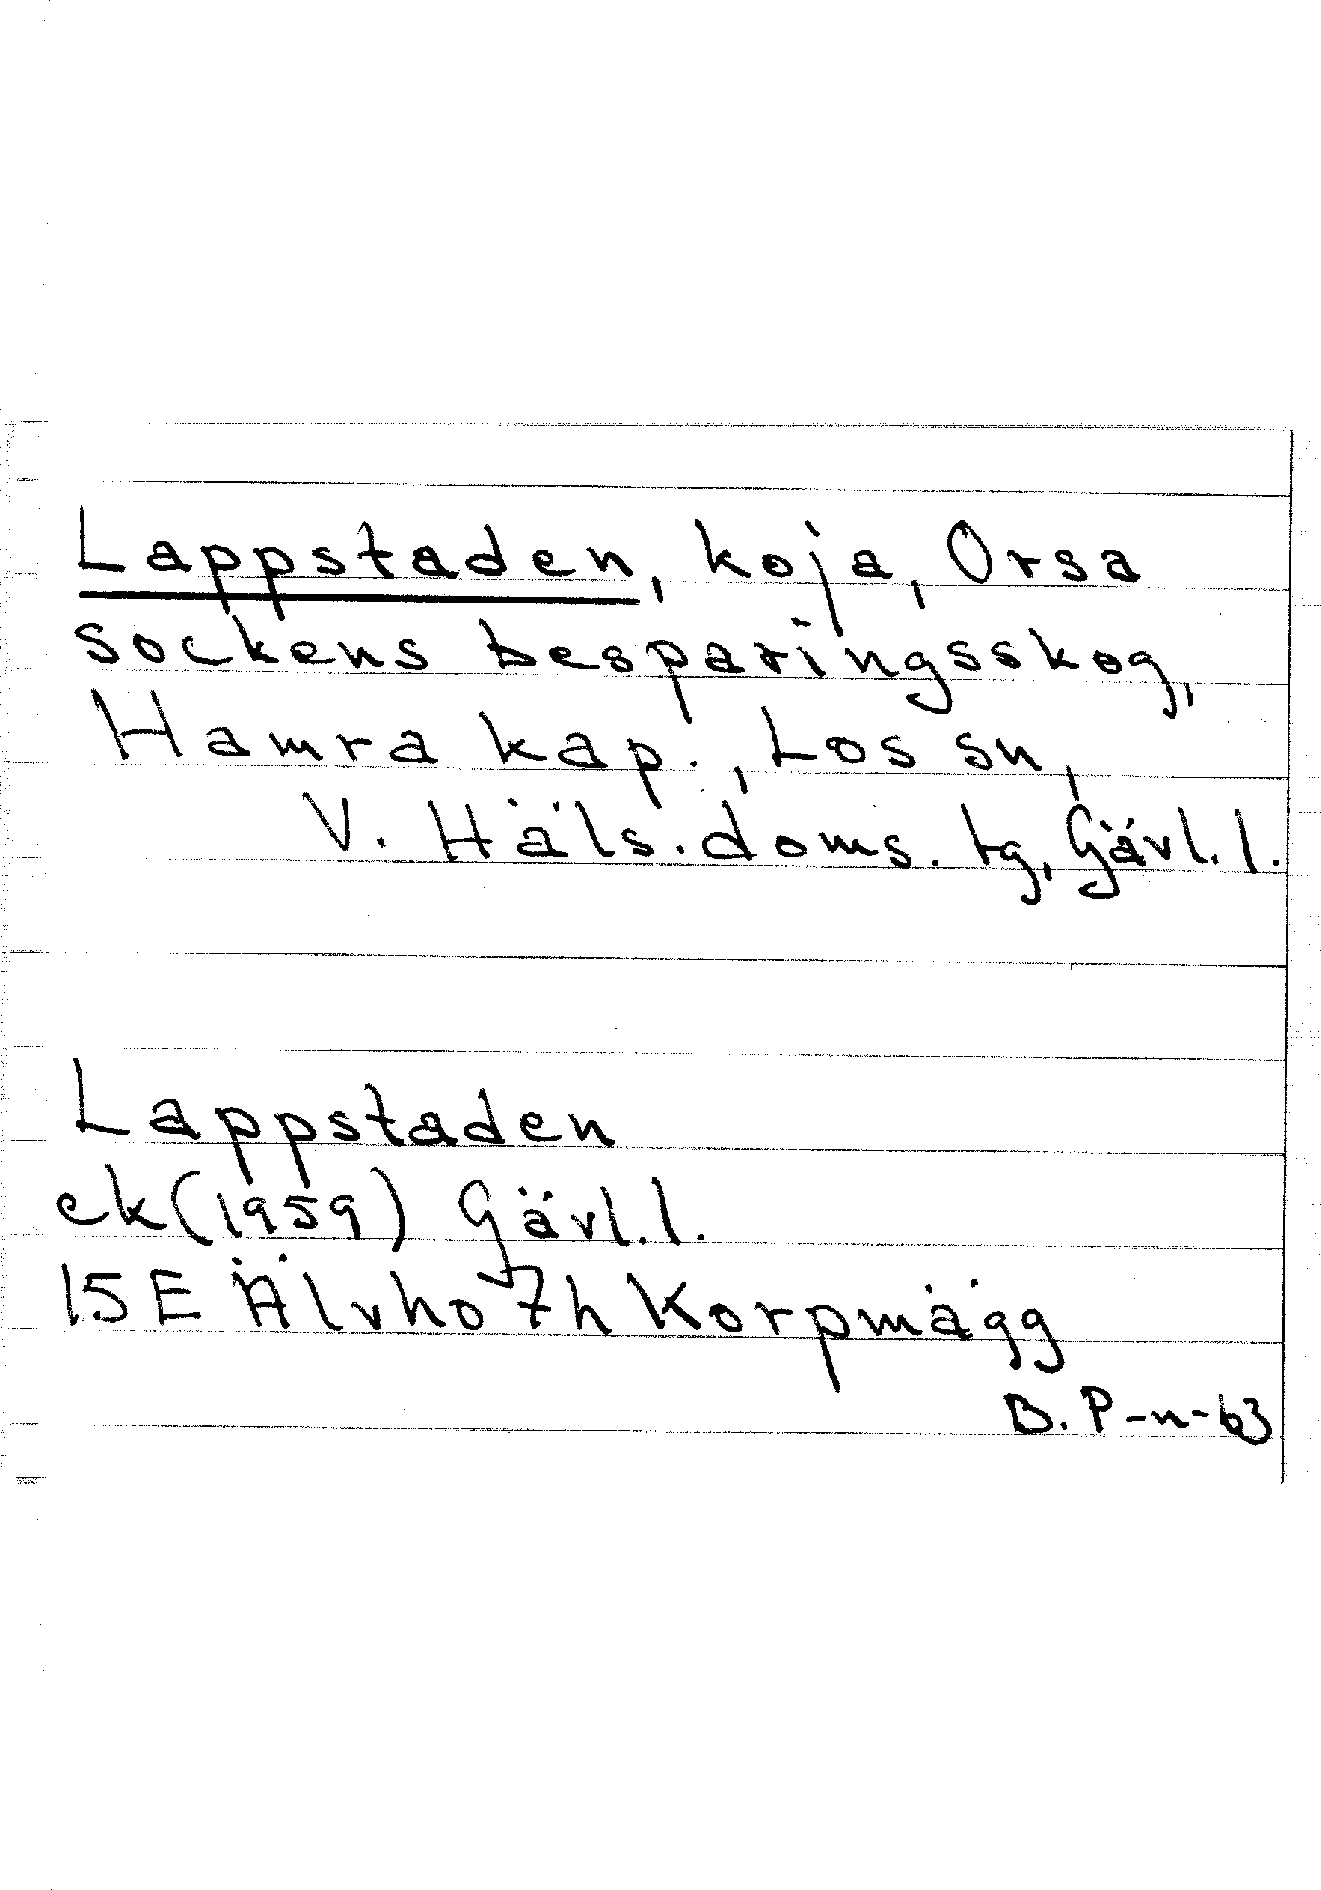 Lappstaden, koja, Orsa
sockens besparingsskog,
Hamra kap., Los sn,
V. Häls. doms. tg, Gävl. l.
Lappstaden
ek (1959) Gävl. l.
15 E Älvho 7h Korpmägg
B. P-n-63